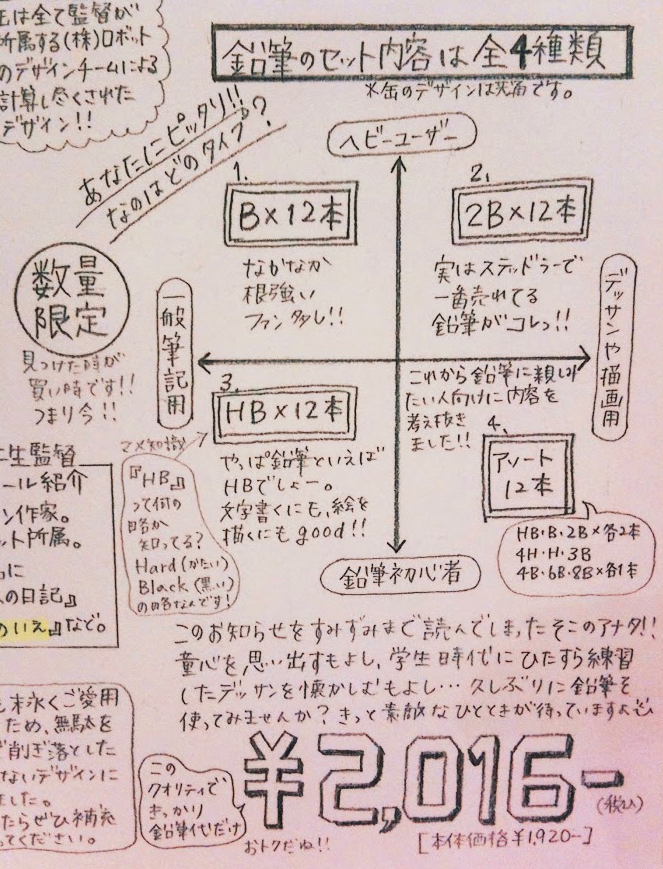 缶は全て監督が
所属する(株)ロボット
のデザインチームによる
計算し尽くされた
デザイン!!
鉛筆のセット内容は全4種類
※缶のデザインは共通です。
あなたにピッタリ!!
なのはどのタイプ?
ヘビーユーザー
1.
B×12本
なかなか
根強い
ファン多し!!
2.
2B×12本
実はステッドラーで
一番売れてる
鉛筆がコレっ!!
数量
限定
見つけた時が
買い時です!!
つまり今!!
一般筆記用
デッサンや描画用
3.
HB×12本
やっぱ鉛筆といえば
HBでしょー。
文字書くにも、絵を
描くにもgood!!
マメ知識
『HB』
って何の
略か
知ってる?
Hard(かたい)
Black(黒い)
の略なんです!
これから鉛筆に親しみ
たい人向けに内容を
考え抜き
ました!!
4.
アソート
12本
HB・B・2B×各2本
4H・H・3B
4B・6B・8B×各1本
鉛筆初心者
生監督
ール紹介
ン作家。
ット所属。
に
の日記』
のいえ』など。
このお知らせをすみずみまで読んでしまったそこのアナタ!!
童心を思い出すもよし、学生時代にひたすら練習
したデッサンを懐かしむもよし…久しぶりに鉛筆を
使ってみませんか?きっと素敵なひとときが待っていますよ
末永くご愛用
ため、無駄を
削ぎ落とした
ないデザインに
ました。
たらぜひ補充
ってください。
この
クオリティで
きっかり
鉛筆代だけ
おトクだね!!
¥2,016-
(税込)
[本体価格¥1,920-]